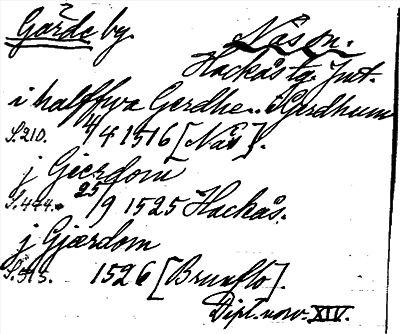 Gärde by. Näs sn.
Hackås tg. Jmt.
i halffva Gerdhe .. Gerdhum
S. 210. 4/4 1516 [Näs].
j Gierdom
S. 444. 25/9 1525 Hackås.
j Gjærdom
S. 313. 1526 [Brunflo].
Dipl. norv. XIV.